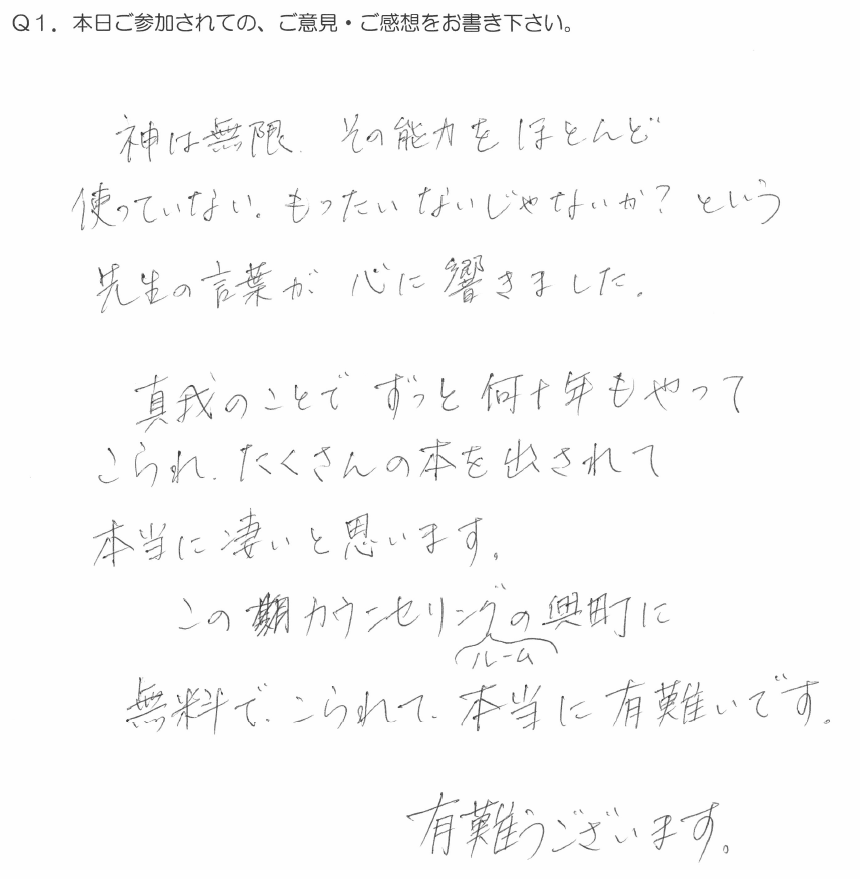 Q1. 本日ご参加されての、ご意見・ご感想をお書き下さい。
神は無限. その能力をほとんど
使っていない。もったいないじゃないか?という
先生の言葉が 心に響きました.
真我のことで ずっと何十年もやって
こられ. たくさんの本を出されて
本当に凄いと思います。
この カウンセリングルームの興町に
無料で. こられて. 本当に有難いです。
有難うございます。